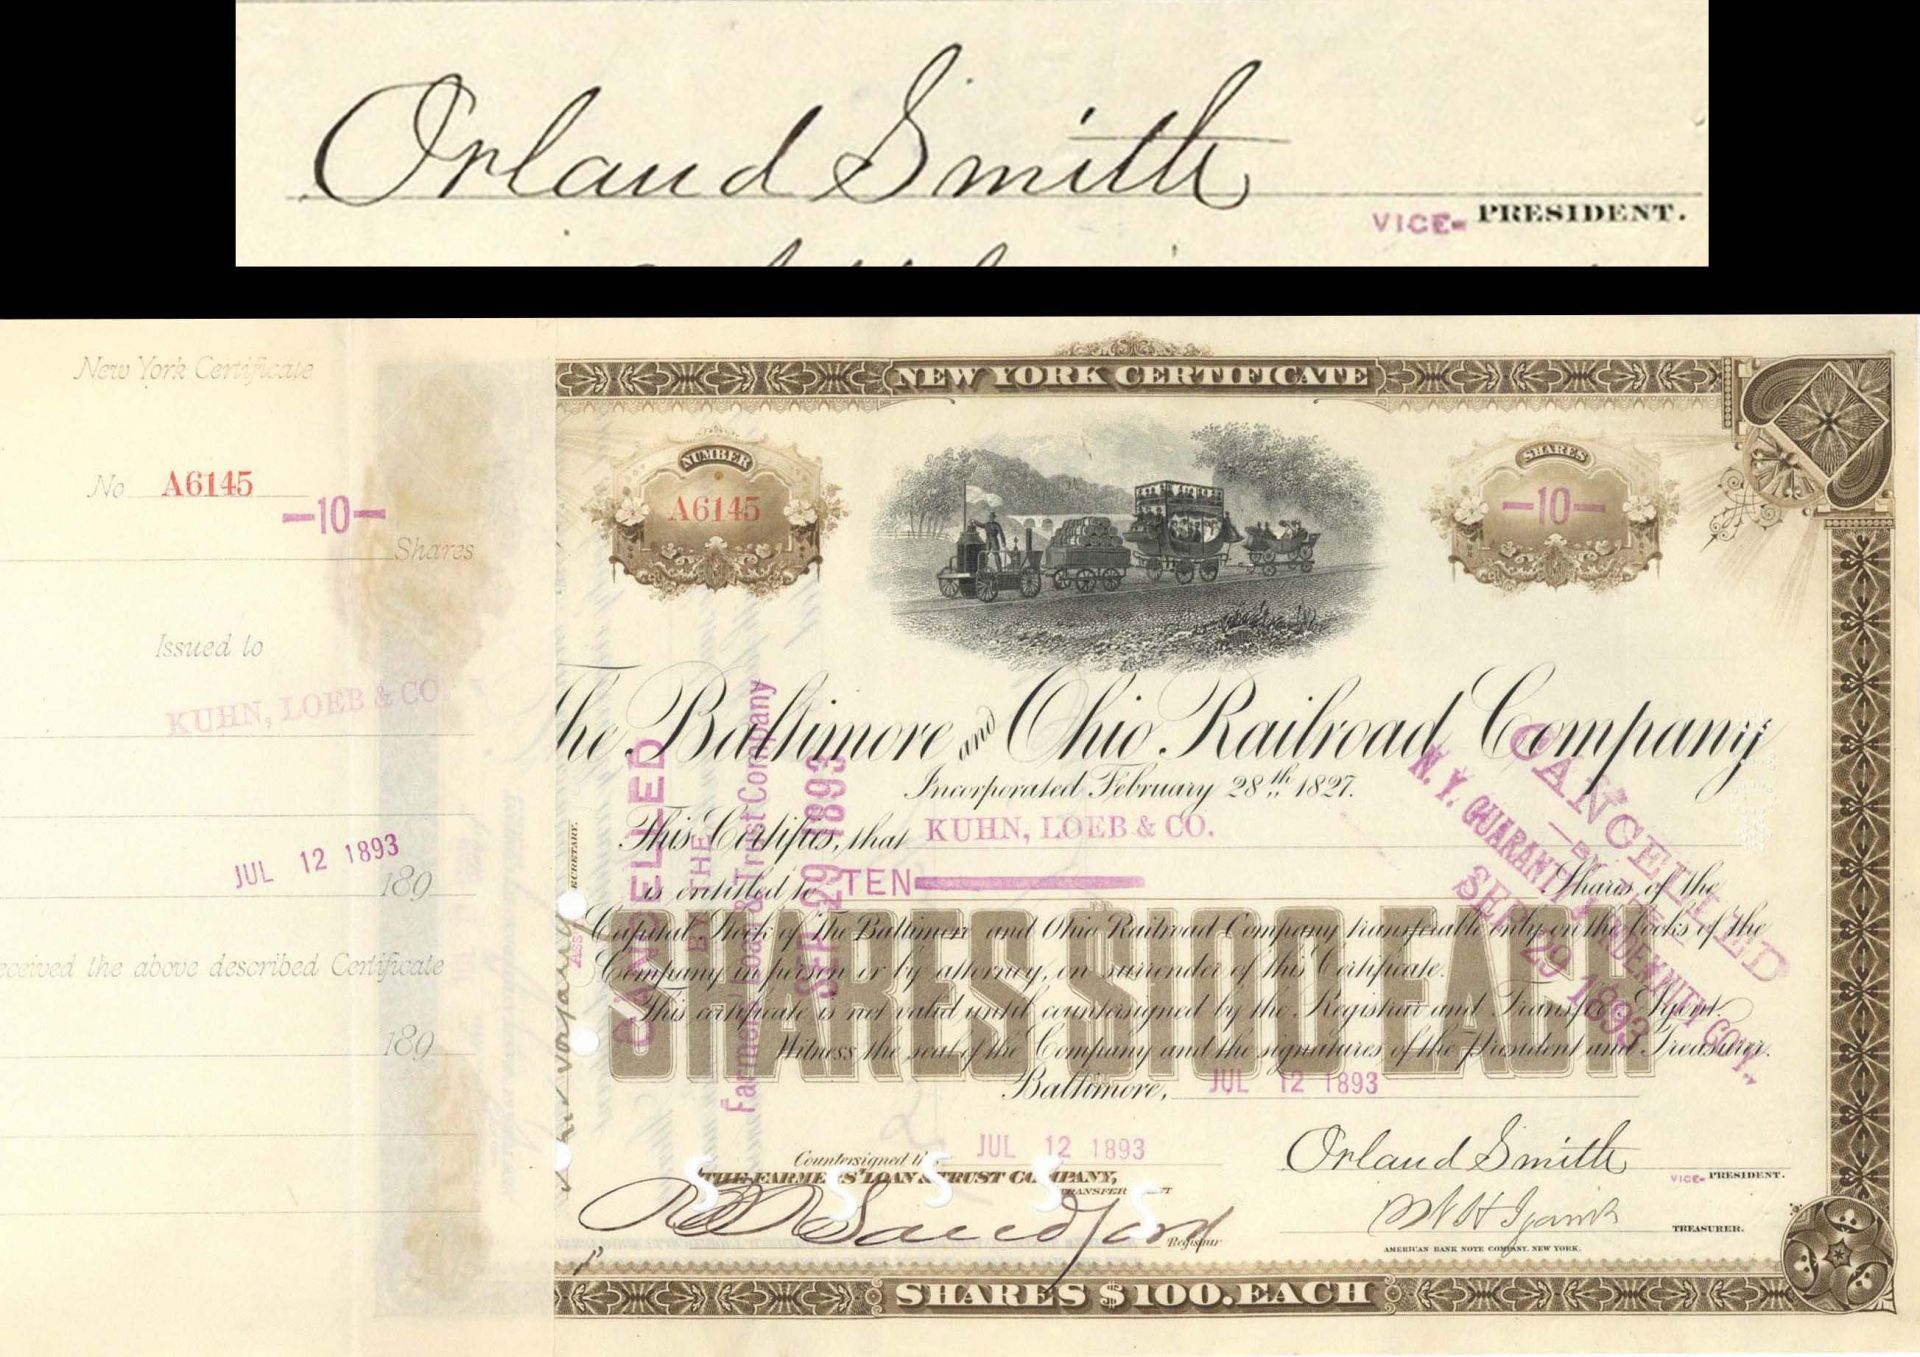 Orland Smith
VICE- PRESIDENT.
New York Certificate
No A6145
—10— Shares
Issued to
KUHN, LOEB & CO.
JUL 12 1893
189
eceived the above described Certificate
189
NEW YORK CERTIFICATE
NUMBER
A6145
SHARES
—10—
The Baltimore and Ohio Railroad Company
Incorporated February 28th 1827.
This Certifies, that KUHN, LOEB & CO.
is entitled to TEN Shares of the
Capital Stock of The Baltimore and Ohio Railroad Company transferable only on the books of the
Company in person or by attorney, on surrender of this Certificate.
This certificate is not valid until countersigned by the Registrar and Transfer Agent.
Witness the seal of the Company and the signatures of the President and Treasurer.
SHARES $100 EACH
Baltimore, JUL 12 1893
CANCELLED
BY THE
Farmers' Loan & Trust Company
SEP 29 1893
CANCELLED
BY THE
N. Y. GUARANTY & INDEMNITY CO'Y.
SEP 29 1893
ECRETARY.
Countersigned JUL 12 1893
THE FARMERS' LOAN & TRUST COMPANY,
TRANSFER
Sandford
Registrar
Orland Smith
VICE- PRESIDENT.
TREASURER.
AMERICAN BANK NOTE COMPANY, NEW YORK.
SHARES $100. EACH